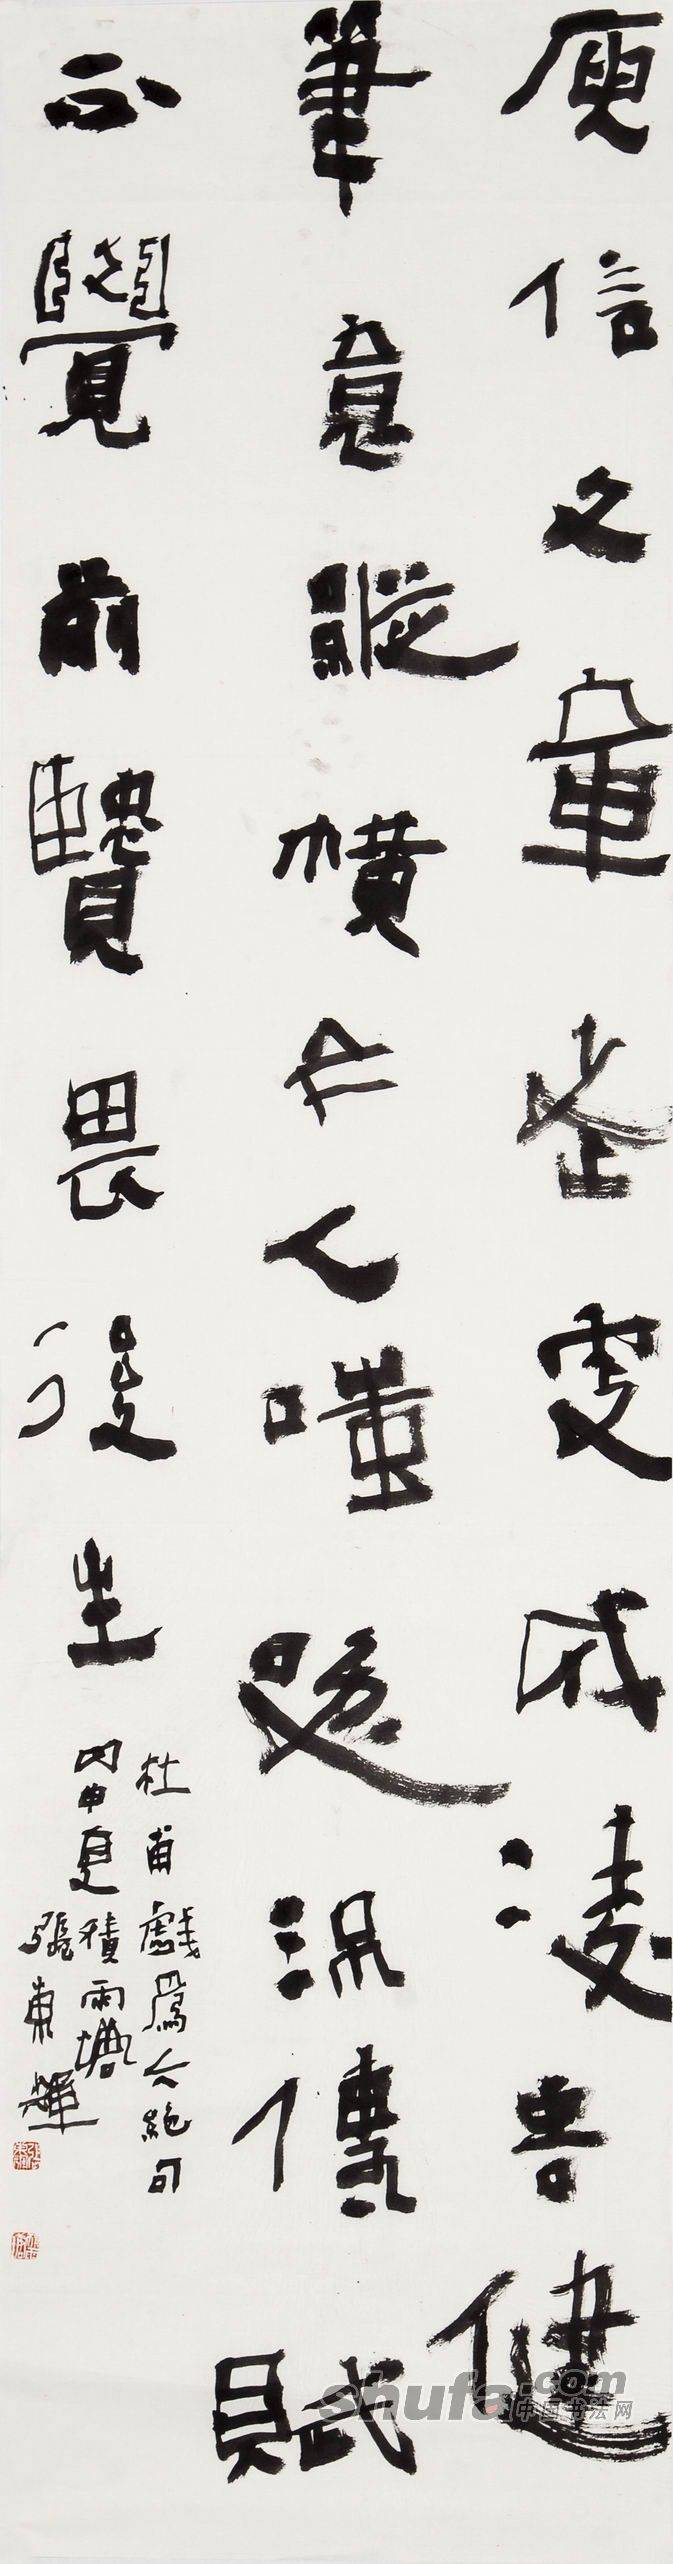 庾信文章老更成凌云健
筆意縱橫今人嗤點流傳賦
不覺前賢畏後生
杜甫戲爲六絕句
丙申夏積雨
張東輝
shufa.com
中国书法网